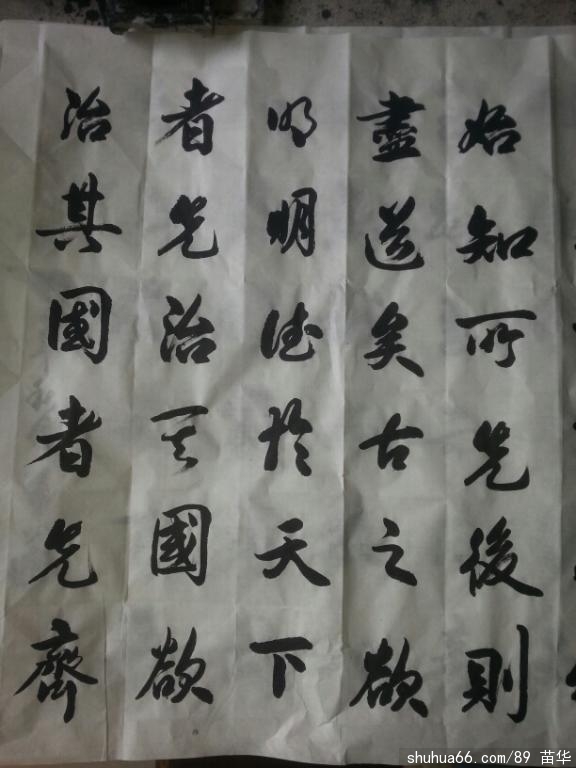 始知所先後則
盡道矣古之欲
明明德於天下
者先治其國欲
治其國者先齊
shuhua66.com/89 苗华